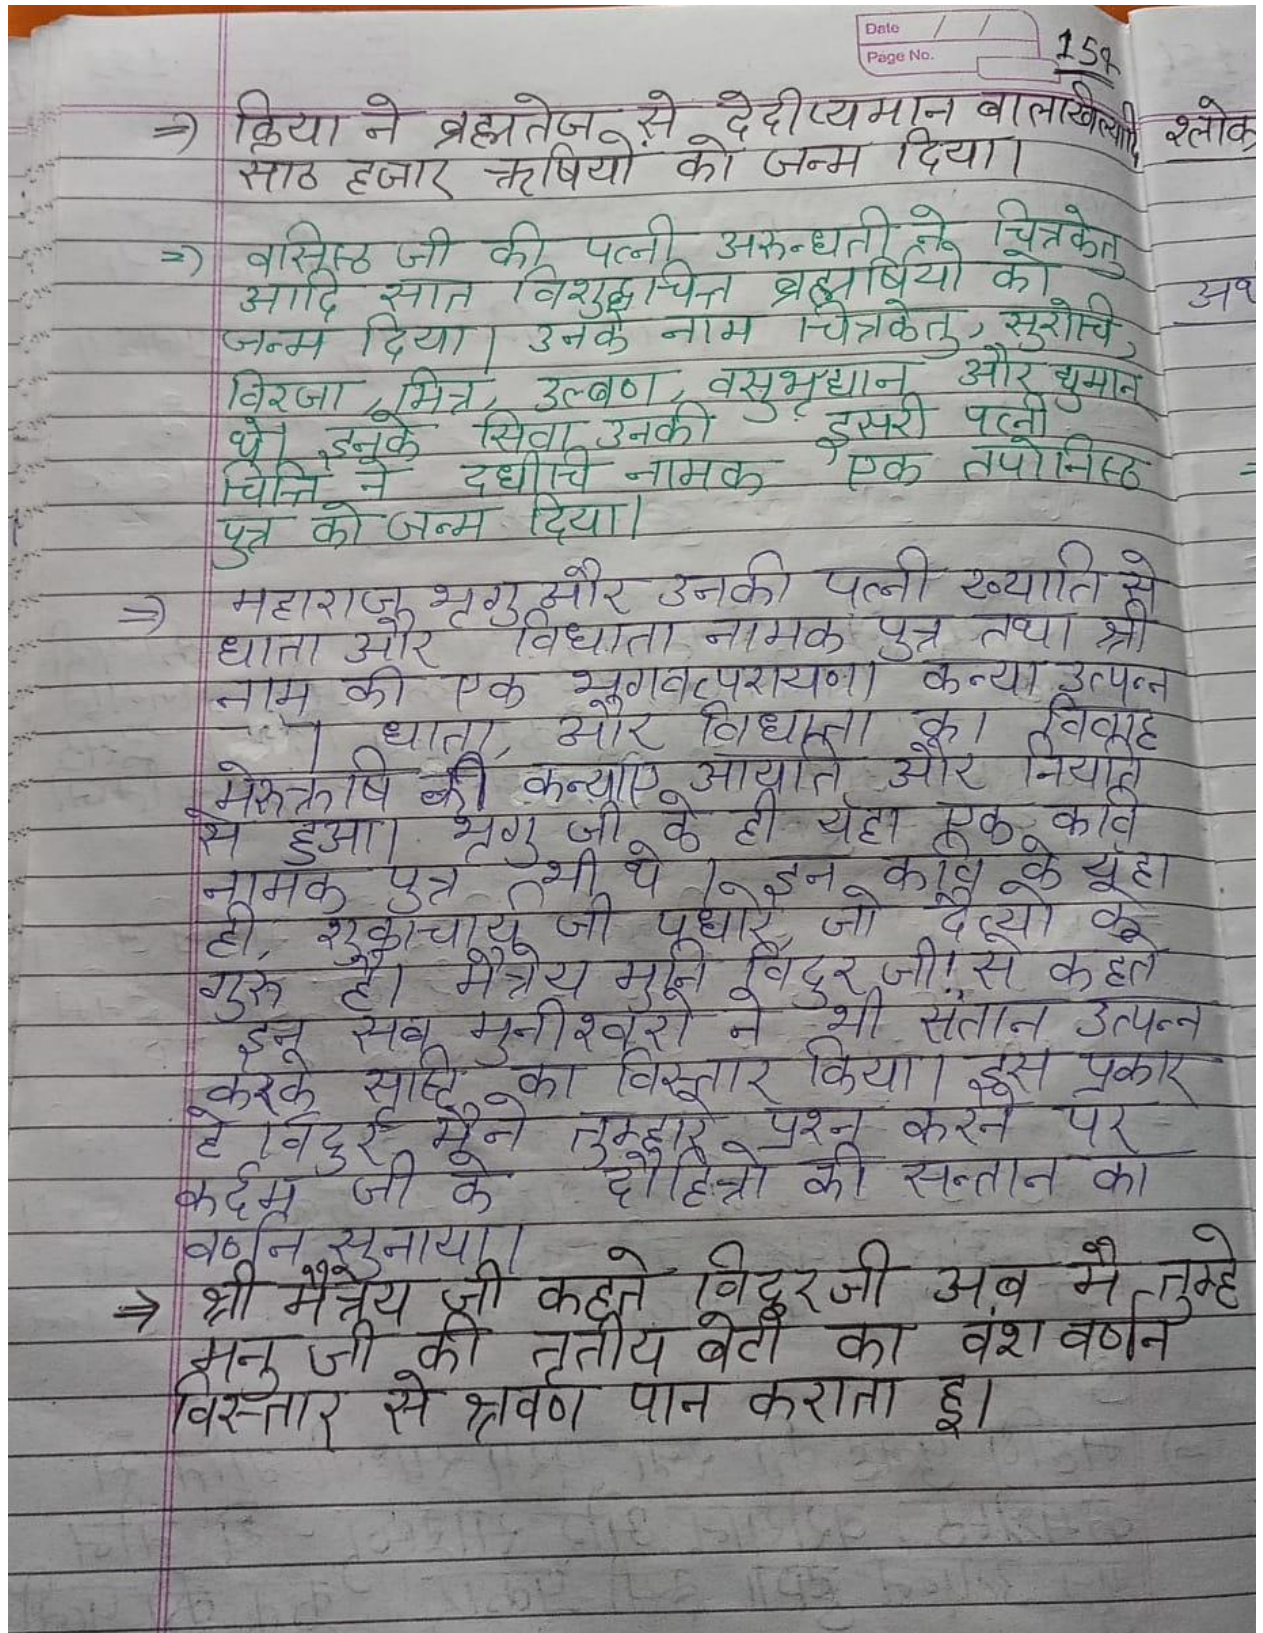 Date / /
Page No.
157
⇒) क्रिया ने ब्रह्मतेज से देदीप्यमान बालखिल्यादि
साठ हजार ऋषियों को जन्म दिया।
⇒) वसिस्ठ जी की पत्नी अरुन्धती ने चित्रकेतु
आदि सात विशुद्धचित्त ब्रह्मर्षियो को
जन्म दिया। उनके नाम चित्रकेतु, सुरोचि,
विरजा, मित्र, उल्बण, वसुभृद्यान और द्युमान
थे। इनके सिवा उनकी दुसरी पत्नी
चित्ति ने दधीचि नामक एक तपोनिस्ठ
पुत्र को जन्म दिया।
⇒) महाराज भृगु और उनकी पत्नी ख्याति से
धाता और विधाता नामक पुत्र तथा श्री
नाम की एक भगवत्परायणा कन्या उत्पन्न
। धाता, और विधाता का विवाह
मेरुऋषि की कन्याए आयति और नियति
से हुआ। भृगु जी के ही यंहा एक कवि
नामक पुत्र भी थे। इन कवि के यंहा
ही, शुक्राचार्य जी पधारे, जो दैत्यो के
गुरु है। मैत्रेय मुनि विदुर जी! से कहते
इन सब मुनीश्वरो ने भी संतान उत्पन्न
करके सृष्टि का विस्तार किया। इस प्रकार
हे विदुर मैने तुम्हारे प्रश्न करने पर
कर्दम जी के दौहित्रो की सन्तान का
वर्णन सुनाया।
⇒ श्री मैत्रेय जी कहते विदुरजी अब मै तुम्हे
मनु जी की तृतीय बेटी का वंश वर्णन
विस्तार से श्रवण पान कराता हू।
श्लोक